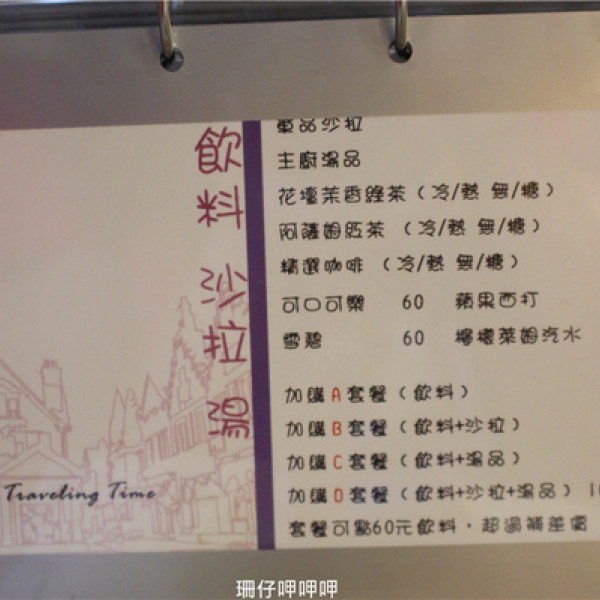 飲料 沙拉 湯
單品沙拉
主廚湯品
花壇茉香綠茶(冷/熱 無/糖)
阿薩姆紅茶(冷/熱 無/糖)
精選咖啡(冷/熱 無/糖)
可口可樂 60 蘋果西打
雪碧 60 檸檬萊姆汽水
加購A套餐(飲料)
加購B套餐(飲料+沙拉)
加購C套餐(飲料+湯品)
加購D套餐(飲料+沙拉+湯品)
套餐可點60元飲料,超過補差價
Traveling Time
珊仔呷呷呷